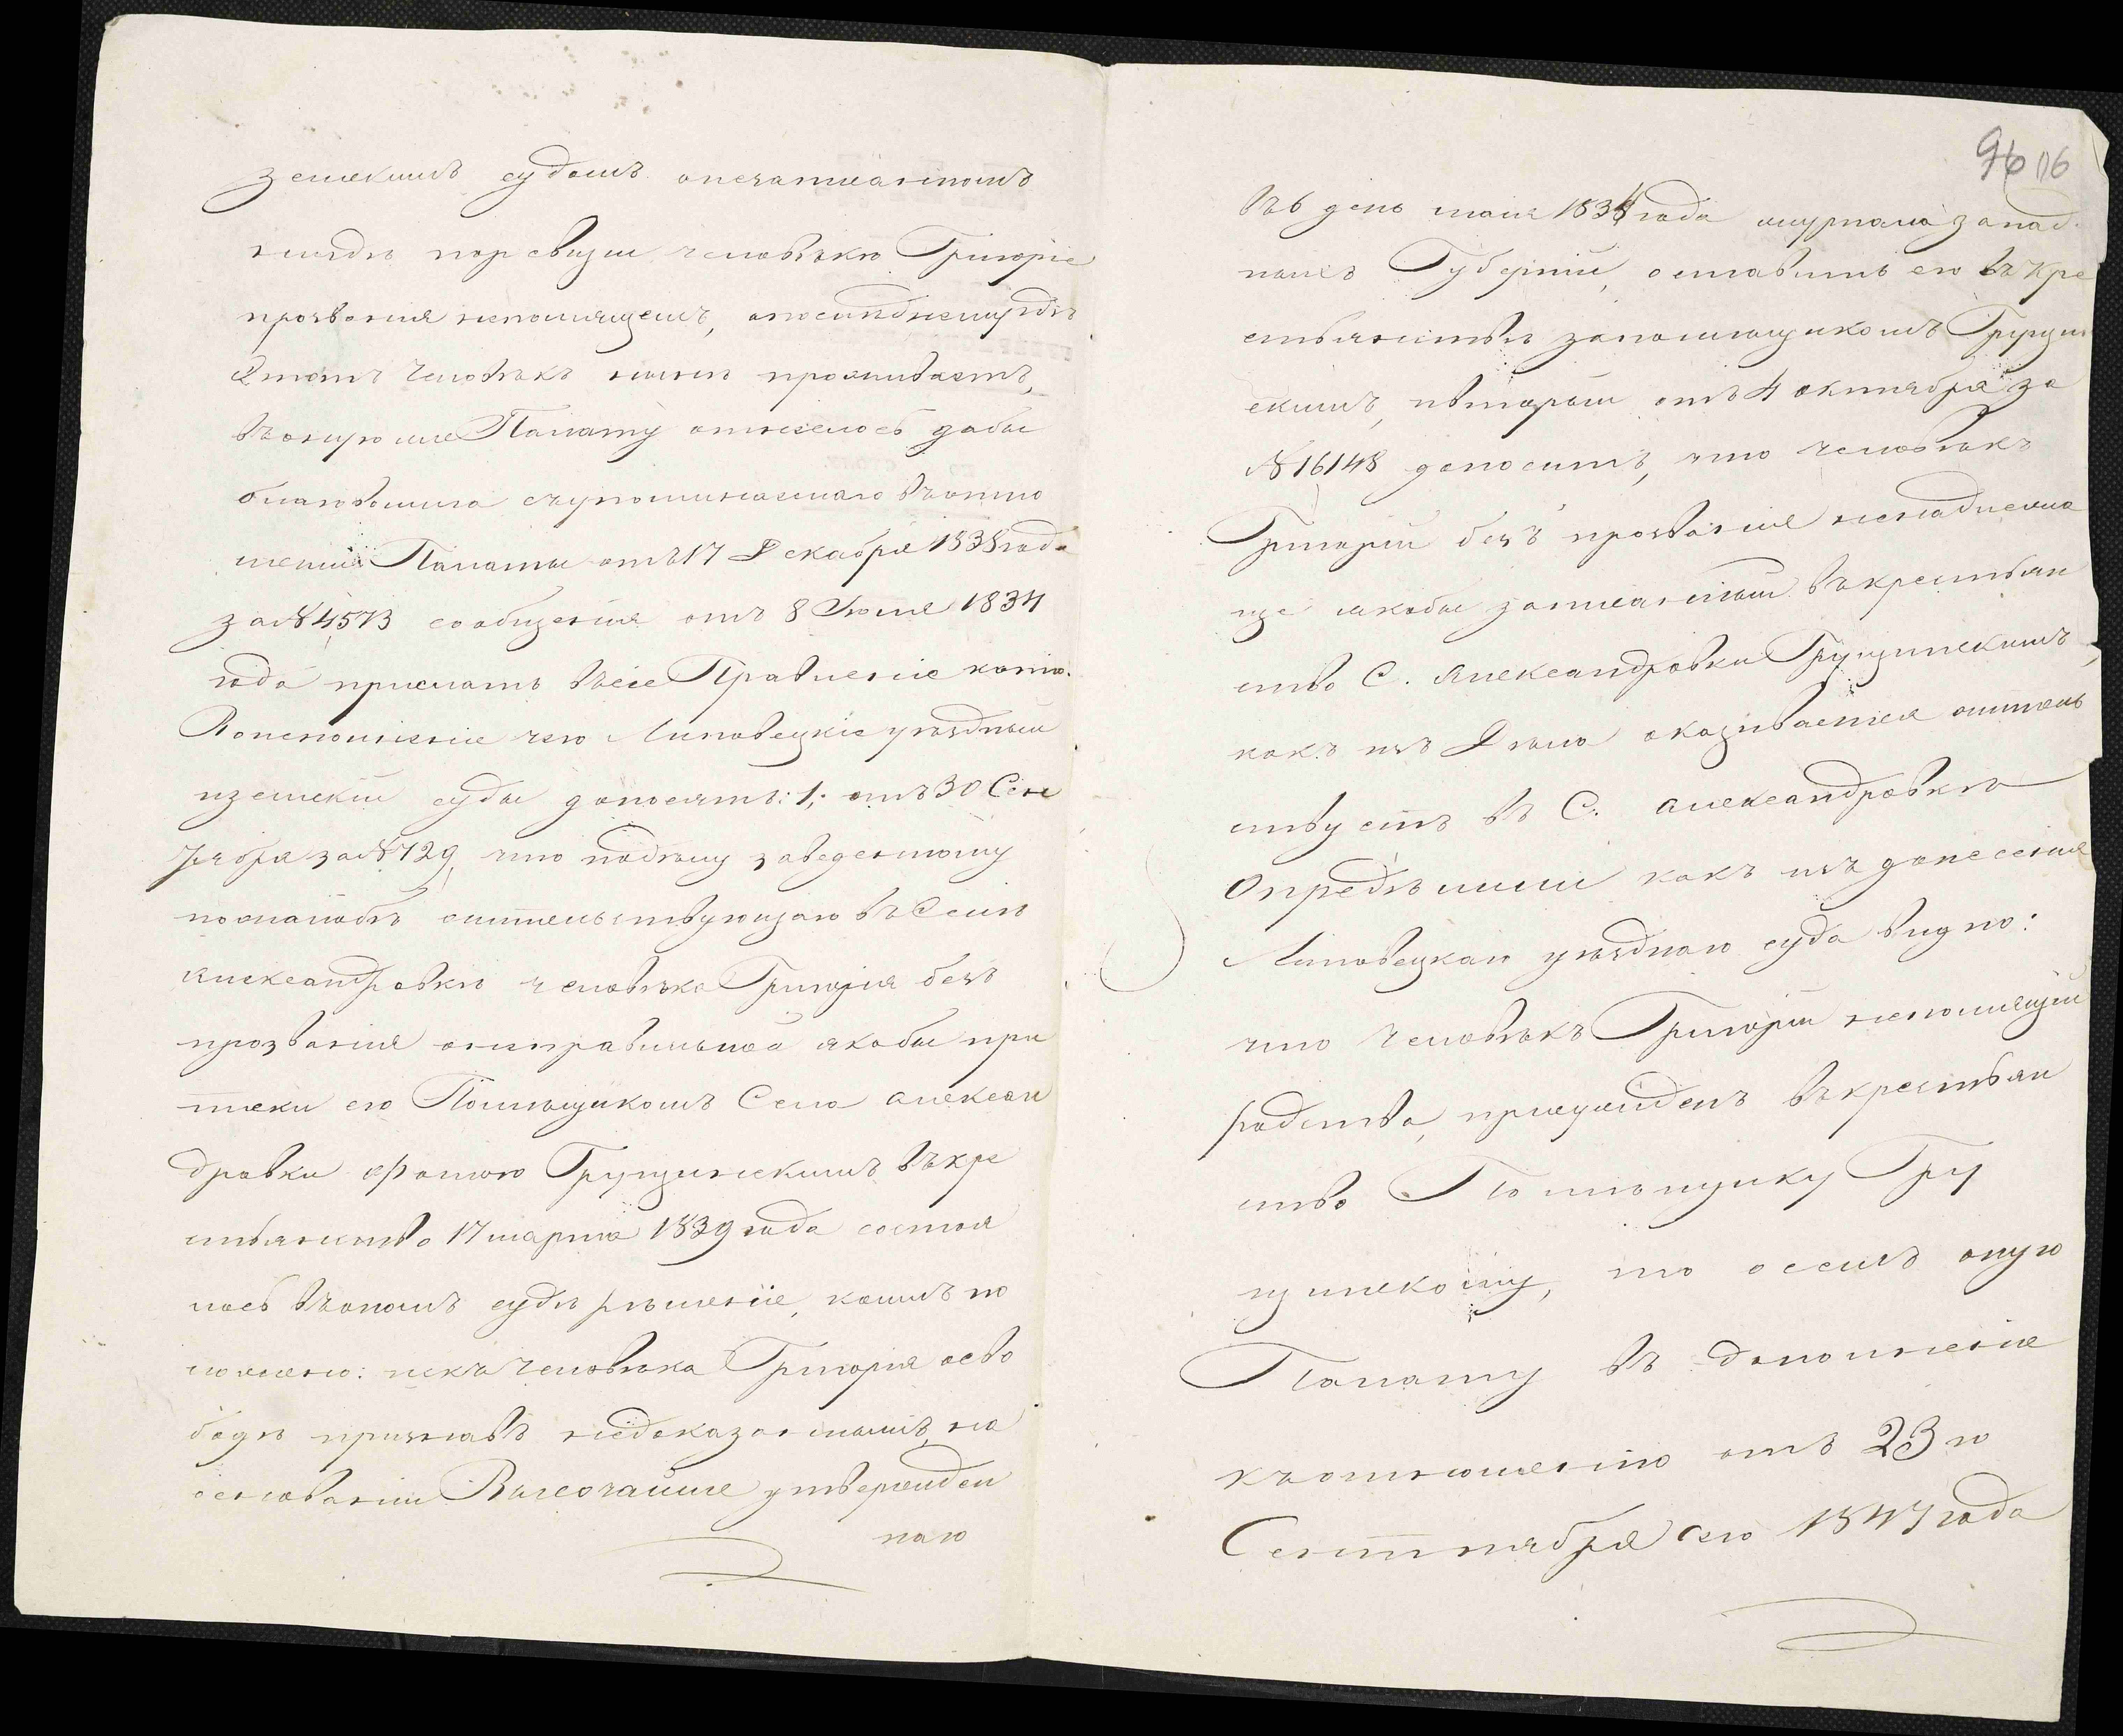 земскимъ судомъ
поревизи человѣкѣ Григоріе
прозванія непомнящемъ,
Этотъ Человѣкъ нынѣ проживаетъ,
Палату отнеслось дабы
благоволила съупоминаемаго въотно
шеніи Палаты отъ 17 Декабря 1838 года
за № 4573 сообщенія отъ 8 Іюля 1834
года прислать въсіе Правленіе копію.
Воисполненіе чего Липовецкіе уѣздный
иземскій суды доносятъ: 1, отъ 30 Сен
тября за № 729, что подѣлу заведенному
пожалобѣ жительствующаго въ Селѣ
Александровкѣ человѣка Григорія безъ
прозванія онеправильной якобы при
писки его Помѣщикомъ Села Алексан
дровки Грущинскимъ въкре
стьянство 17 марта 1839 года состоя
лось въономъ судѣ рѣшеніе, коимъ по
ложено: искъ человѣка Григорія осво
бодѣ признавъ недоказаннымъ, на
основаніи Высочайше утвержден
наго
96 116
въ 6 день мая 1834 года журнала запад.
ныхъ Губерній, оставить его въ кре
стьянствѣ запомѣщикомъ Грущин
скимъ, ивторый отъ 4 октября за
№ 16148 доноситъ, что человѣкъ
Григорій безъ прозванія ненадлежа
ще якобы записанный въкрестьян
ство С. Александровки Грущинскимъ,
какъ изъ Дѣла оказывается жительс
ствуетъ въ С. Александровкѣ
Опредѣлили какъ изъ донесенія
Липовецкаго уѣзднаго суда видно:
что человѣкъ Григорій непомнящій
родства, присужденъ въкрестьян
ство Помѣщику Гру
щинскому, то осемъ оную
Палату въ дополненіе
къотношенію отъ 23 го
Сентября сего 1847 года